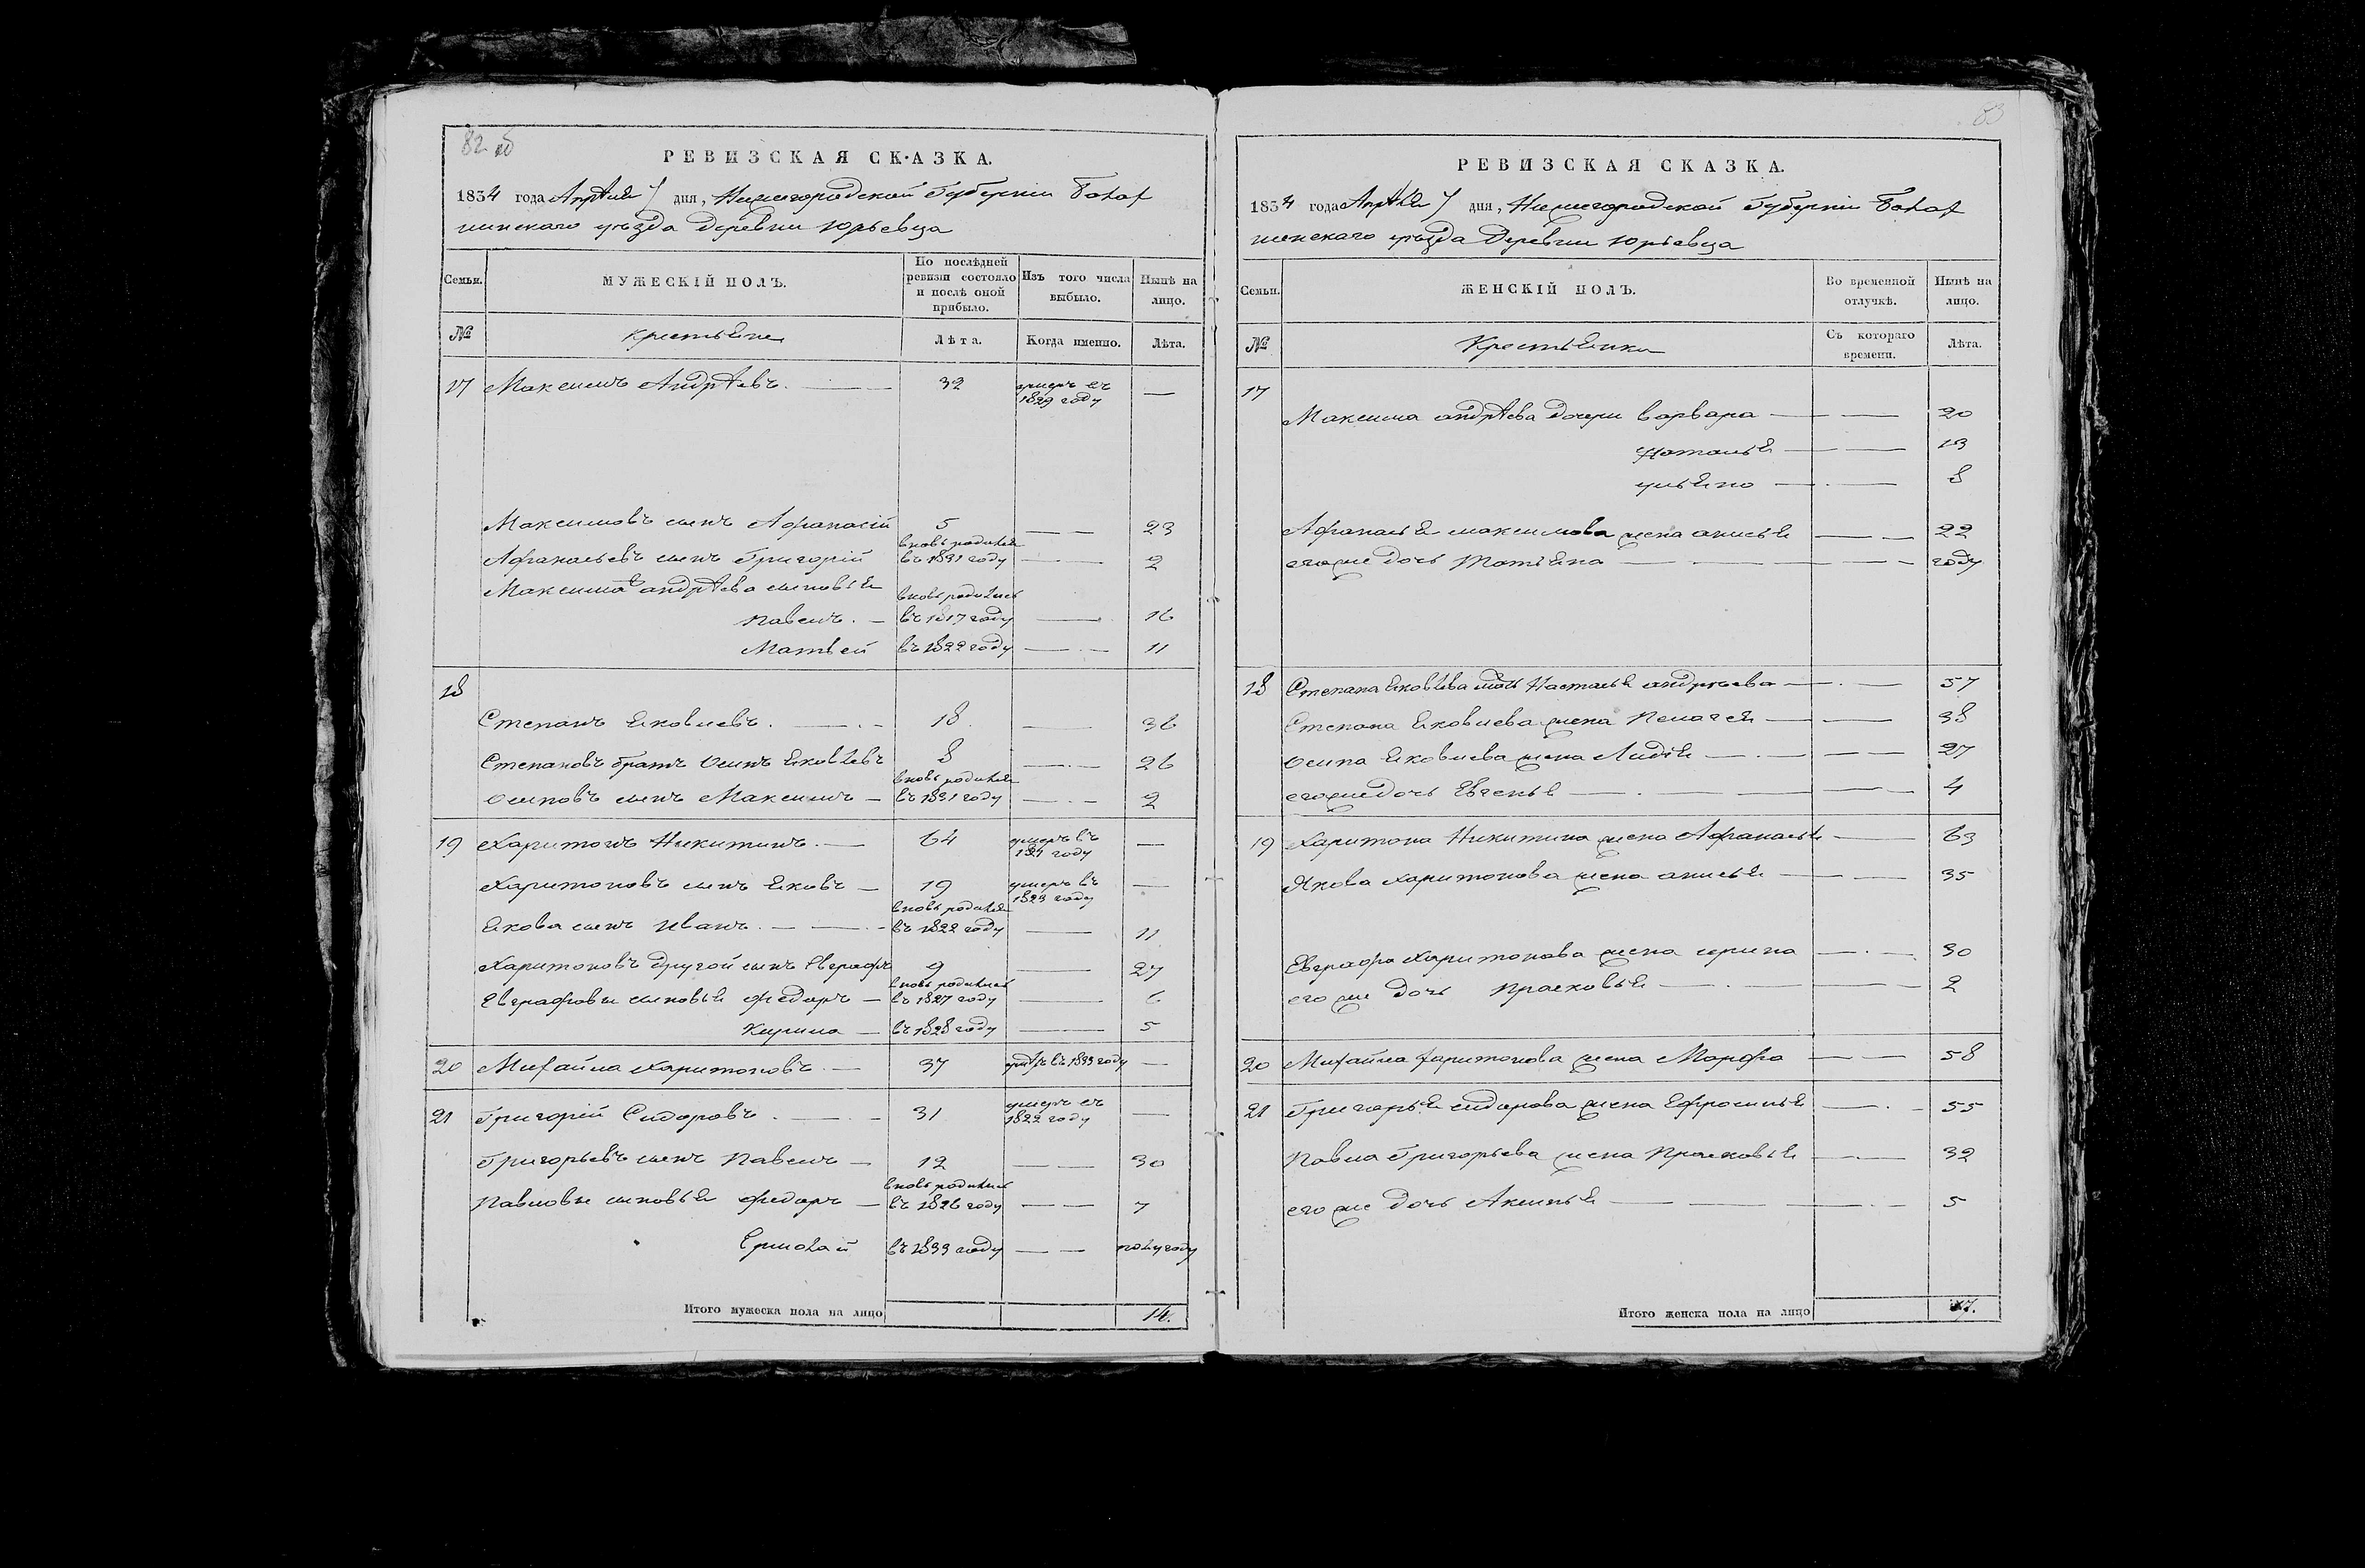 82 об
РЕВИЗСКАЯ СКАЗКА.
1834 года Апрѣля 7 дня, Нижегородской Губерніи Балах
нинскаго уѣзда Деревни Юрьевца
Семьи. МУЖЕСКІЙ ПОЛЪ. По послѣдней ревизіи состояло и послѣ оной прибыло. Изъ того числа выбыло. Нынѣ на лицо.
№ крестьяне Лѣта. Когда именно. Лѣта.
17 Максимъ Андрѣевъ. 32 умеръ въ 1829 году —
Максимовъ сынъ Афанасій 5 — 23
Афанасьевъ сынъ Григорій вновь родился въ 1831 году — 2
Максима андрѣева сыновья вновь родились
павелъ. въ 1817 году — 16
Матвей въ 1822 году — 11
18
Степанъ яковлевъ. 18 — 36
Степановъ братъ осипъ яковлевъ 8 — 26
осиповъ сынъ Максимъ вновь родился въ 1831 году — 2
19 Харитонъ Никитинъ. 64 умеръ въ году —
Харитоновъ сынъ яковъ 19 умеръ въ 1823 году —
якова сынъ иванъ вновь родился въ 1822 году — 11
Харитоновъ другой сынъ Евграфъ 9 — 27
Евграфовы сыновья федоръ вновь родились въ 1827 году — 6
Кирила въ 1828 году — 5
20 Михайла Харитоновъ 37 въ 1833 году —
21 Григорій Сидоровъ. 31 умеръ въ 1822 году —
Григорьевъ сынъ павелъ 12 — 30
павловы сыновья федоръ вновь родились въ 1826 году — 7
Ермолай въ 1833 году — полугоду
Итого мужеска пола на лицо 14.
83
РЕВИЗСКАЯ СКАЗКА.
1834 года Апрѣля 7 дня, Нижегородской Губерніи Балах
нинскаго уѣзда Деревни Юрьевца
Семьи. ЖЕНСКІЙ ПОЛЪ. Во временной отлучкѣ. Нынѣ на лицо.
№ Крестьянки Съ котораго времени. Лѣта.
17
Максима андрѣева дочери варвара — 20
наталья — 13
ульяна — 8
Афанасья максимова жена анисья — 22
егоже дочь татьяна — году
18 Степана яковлева мать Настасья андрѣева — 57
Степана яковлева жена пелагея — 38
осипа яковлева жена Лидія — 27
егоже дочь Евгенья — 4
19 Харитона Никитина жена Афанасья — 63
Якова Харитонова жена анисья — 35
Евграфа Харитонова жена ирина — 30
его же дочь прасковья — 2
20 Михайла харитонова жена Марфа — 58
21 Григорья сидорова жена Ефросинья — 55
павла Григорьева жена прасковья — 32
его же дочь Аксинья — 5
Итого женска пола на лицо 17.